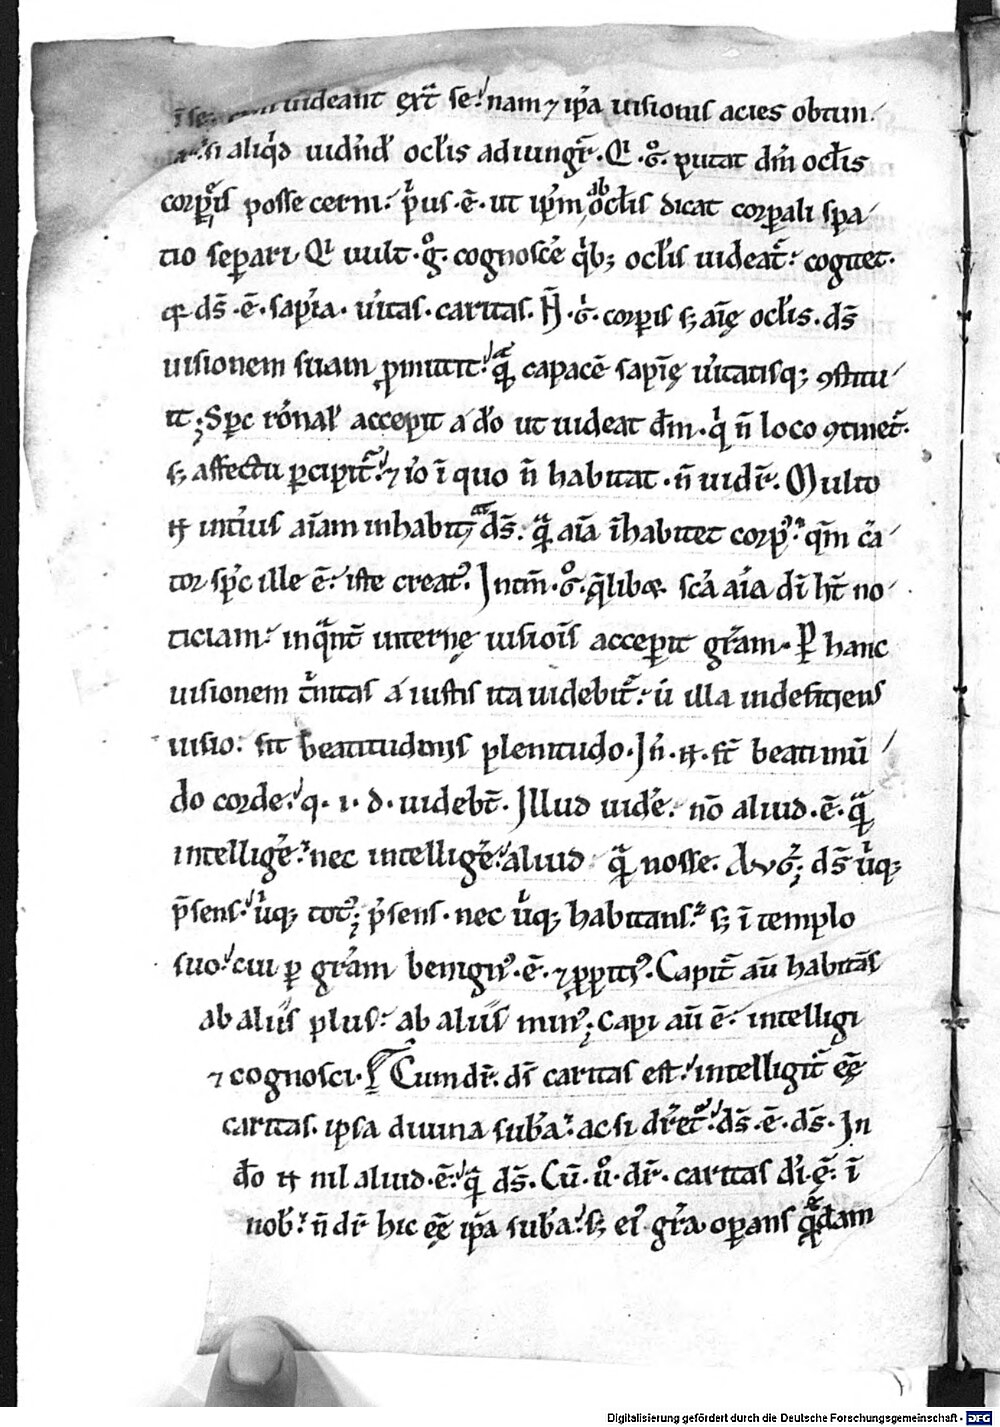 uideant ext̄ se. nam ⁊ ip̄a uisionis acies obtun
si aliqͥd uidn̄d' ocl̄is adiungr̄. Qͥ .gͦ. putat dm̄ ocl̄is
corꝑis posse cerni. pͥus .ē. ut ip̄m ab ocl̄is dicat corꝑali spa
tio seꝑari. Qͥ uult .gͦ. cognosce̾ qͥbꝫ ocl̄is uideat̄. cogitet.
ds̄ .ē. sapīa. u̾itas. caritas. N̄ .gͥ. corꝑis sꝫ aīę ocl̄is. ds̄
uisionem suam ꝓmittit. capacē sapīę u̾itatisqꝫ ꝯstitu
it. Spc rōnal' accepit a do ut uideat dm̄. qͥ n̄ loco ꝯtinet̄.
sꝫ affectu ꝑcipit̄. ⁊ iō ī quo n̄ habitat. n̄ uidr̄. Multo
int̾ius aīam inhabitat ds̄. qͣ̄ aīa īhabitet corpꝰ. qm̄ c̾a
tor spc ille ē. iste creatꝰ. Intm̄ .gͦ. q̄libꝫ sc̄a aīa dī ht̄ no
ticiam. inqͣ̄nt̄ internę uisioīs accepit gr̄am. Ꝑ hanc
uisionem tͥnitas a iustis ita uidebit̄. ū illa indeficiens
uisio. sit beatitudinis plenitudo. beati mū
do corde. q. i. d. uidebt̄. Illud uide̾. nō aliud .ē. qͣ̄
intellige̾. nec intellige̾ aliud qͣ̄ nosse. Avḡ. ds̄ uͥqꝫ
p̄sens. uͥqꝫ totꝰ p̄sens. nec uͥqꝫ habitans. sꝫ ī templo
suo. cui ꝑ gr̄am benignꝰ .ē. ⁊ ꝓpitiꝰ. Capit̄ aū habitās
ab aliis plus. ab aliis minꝰ. Capi aū ē. intelligi
⁊ cognosci. Cum dr̄. ds̄ caritas est. intelligit̄ eē
caritas. ipsa diuina sub̄a. ac si dr̄et̄. ds̄ .ē. ds̄. In
do nil aliud .ē. qͣ̄ ds̄. Cū .uͦ. dr̄. caritas dī .ē. ī
nob̄. n̄ dr̄ hic eē ip̄a sub̄a. sꝫ eiꝰ gr̄a oꝑans
Digitalisierung gefördert durch die Deutsche Forschungsgemeinschaft - DFG